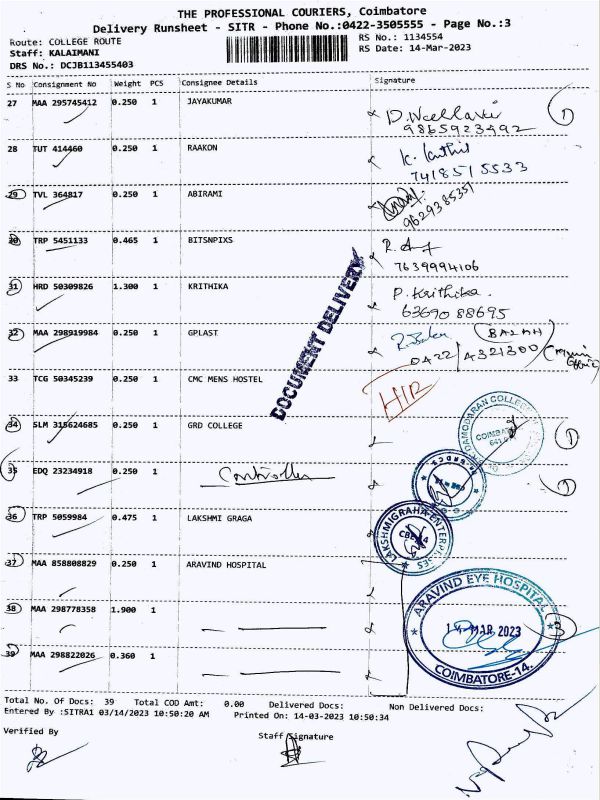 THE PROFESSIONAL COURIERS, Coimbatore
Delivery Runsheet - SITR - Phone No.:0422-3505555 - Page No.:3
Route: COLLEGE ROUTE
RS No.: 1134554
Staff: KALAIMANI
RS Date: 14-Mar-2023
DRS No.: DCJB113455403
S No Consignment No Weight PCS Consignee Details Signature
27 MAA 295745412 0.250 1 JAYAKUMAR
9865923492
28 TUT 414460 0.250 1 RAAKON
7418515533
29 TVL 364817 0.250 1 ABIRAMI
9629385351
30 TRP 5451133 0.465 1 BITSNPIXS
7639994106
31 HRD 50309826 1.300 1 KRITHIKA P. Krithika
63690 88695
32 MAA 298919984 0.250 1 GPLAST
0422/4321300
DOCUMENT DELIVERY
33 TCG 50345239 0.250 1 CMC MENS HOSTEL
34 SLM 315624685 0.250 1 GRD COLLEGE
35 EDQ 23234918 0.250 1 Controller
36 TRP 5059984 0.475 1 LAKSHMI GRAGA
LAKSHMIGRAHA ENTERPRISES
37 MAA 858808829 0.250 1 ARAVIND HOSPITAL
38 MAA 298778358 1.900 1
39 MAA 298822026 0.360 1
ARAVIND EYE HOSPITAL
14 MAR 2023
COIMBATORE-14.
Total No. Of Docs: 39 Total COD Amt: 0.00 Delivered Docs: Non Delivered Docs:
Entered By :SITRA1 03/14/2023 10:50:20 AM Printed On: 14-03-2023 10:50:34
Verified By Staff Signature